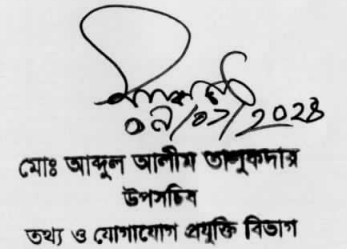 মোঃ আব্দুল আলীম তালুকদার
উপসচিব
তথ্য ও যোগাযোগ প্রযুক্তি বিভাগ